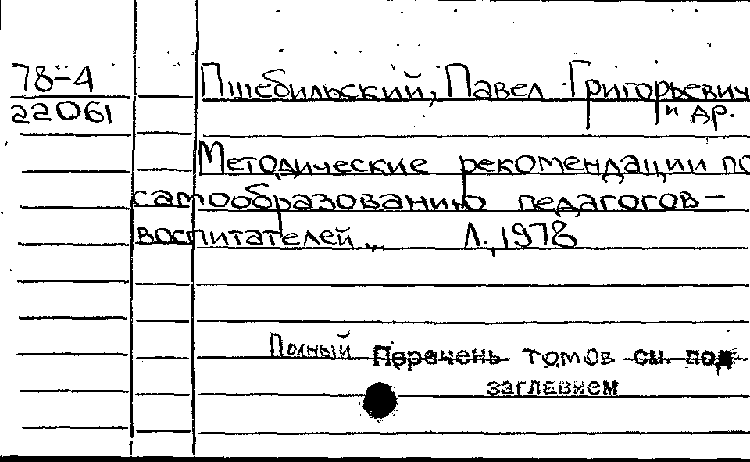 78-4
22061
Пшебильский, Павел Григорьевич
и др.
Методические рекомендации по
самообразованию педагогов-
воспитателей... Л., 1978
Полный Перечень томов см. под
заглавием